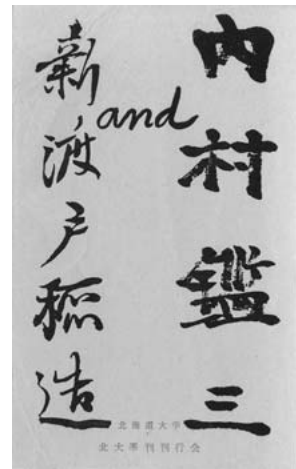 内村鑑三
and
新渡戸稲造
北海道大学
北大季刊刊行会